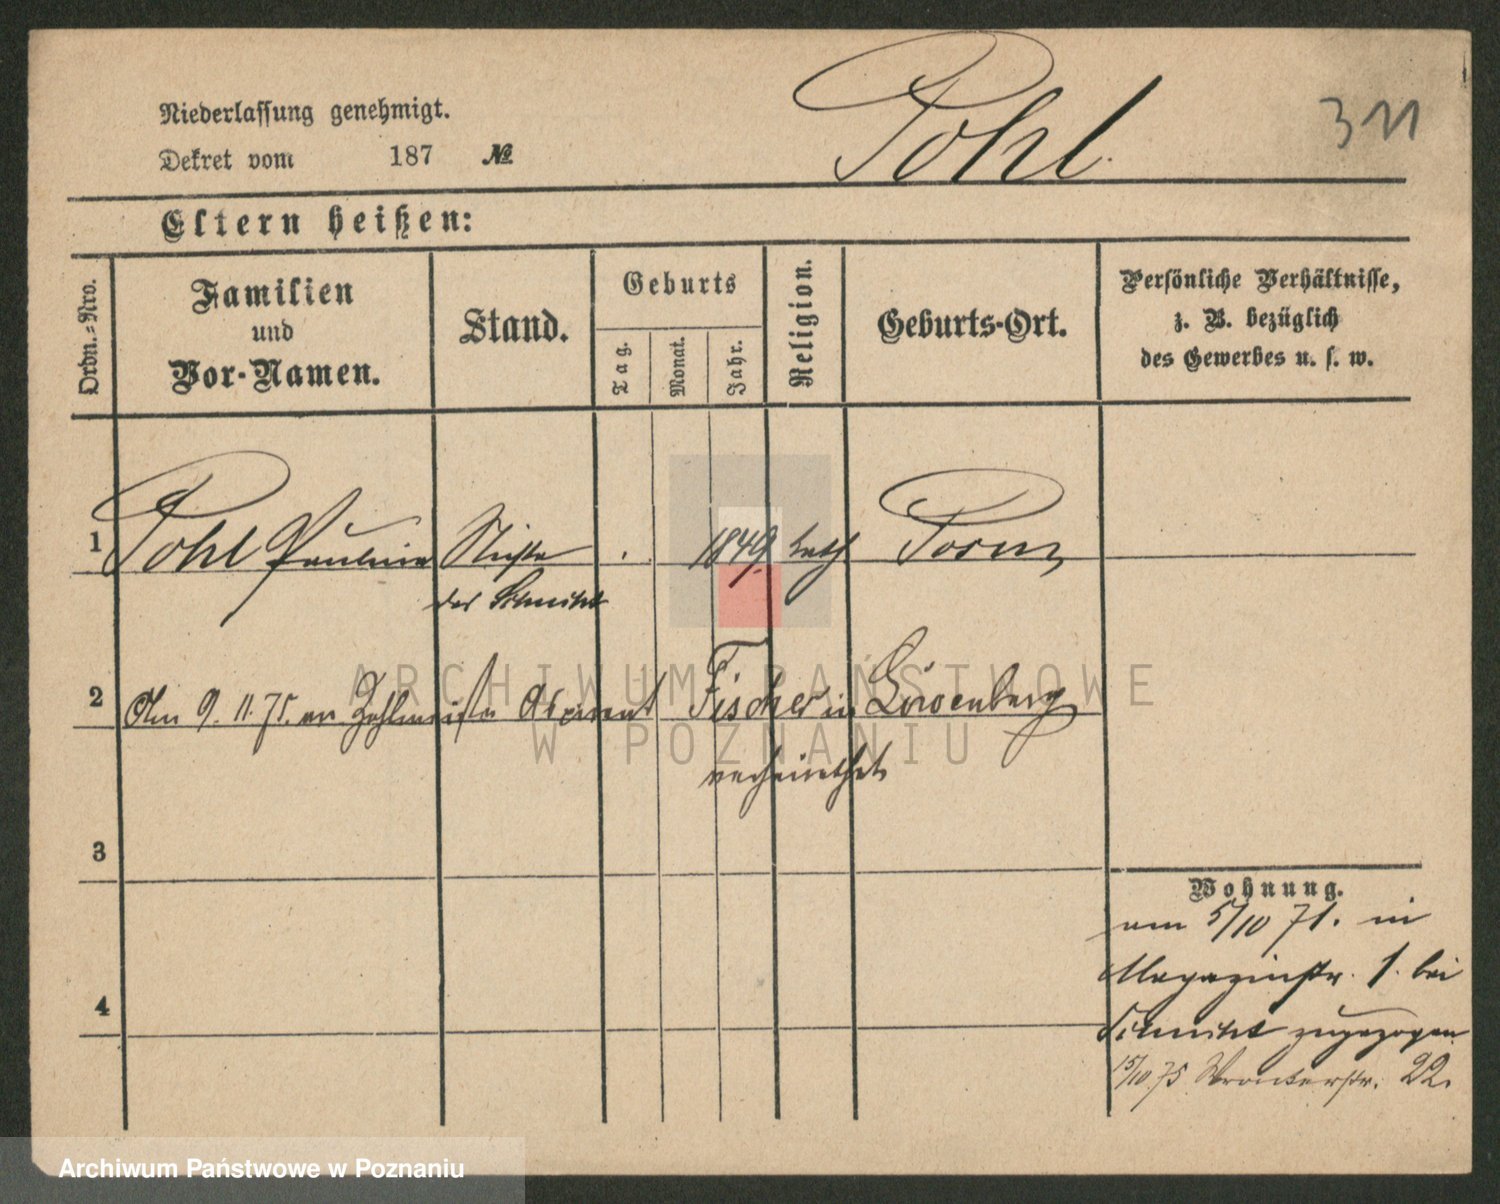 Pohl
311
Niederlassung genehmigt.
Dekret vom 187 №
Eltern heißen:
Ordn.-Nro.
Familien
und
Vor-Namen.
Stand.
Geburts
Tag.
Monat.
Jahr.
Religion.
Geburts-Ort.
Persönliche Verhältnisse,
z. B. bezüglich
des Gewerbes u. s. w.
1 Pohl Pauline Nichte 1849 kath Posen
der Schmidt
2 Am 9.11.75. an Zahlmeister Aspirant Fischer in Löwenberg
verheirathet
3
4
Wohnung.
am 5/10 71. in
Magazinstr. 1. bei
Schmidt zugezogen
15/10 75 Wronkerstr. 22.
ARCHIWUM PAŃSTWOWE
W POZNANIU
Archiwum Państwowe w Poznaniu